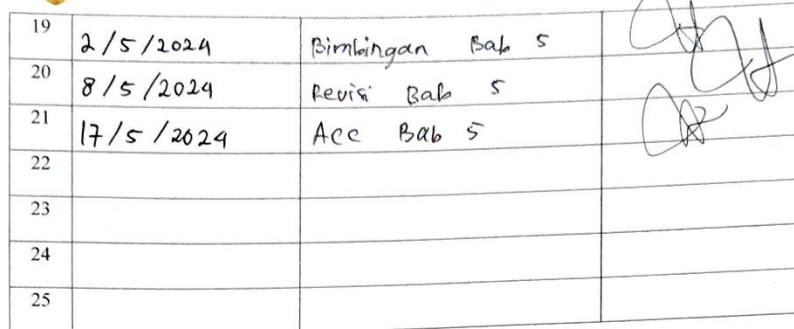 19 2/5/2024 Bimbingan Bab 5
20 8/5/2024 Revisi Bab 5
21 17/5/2024 Acc Bab 5
22
23
24
25